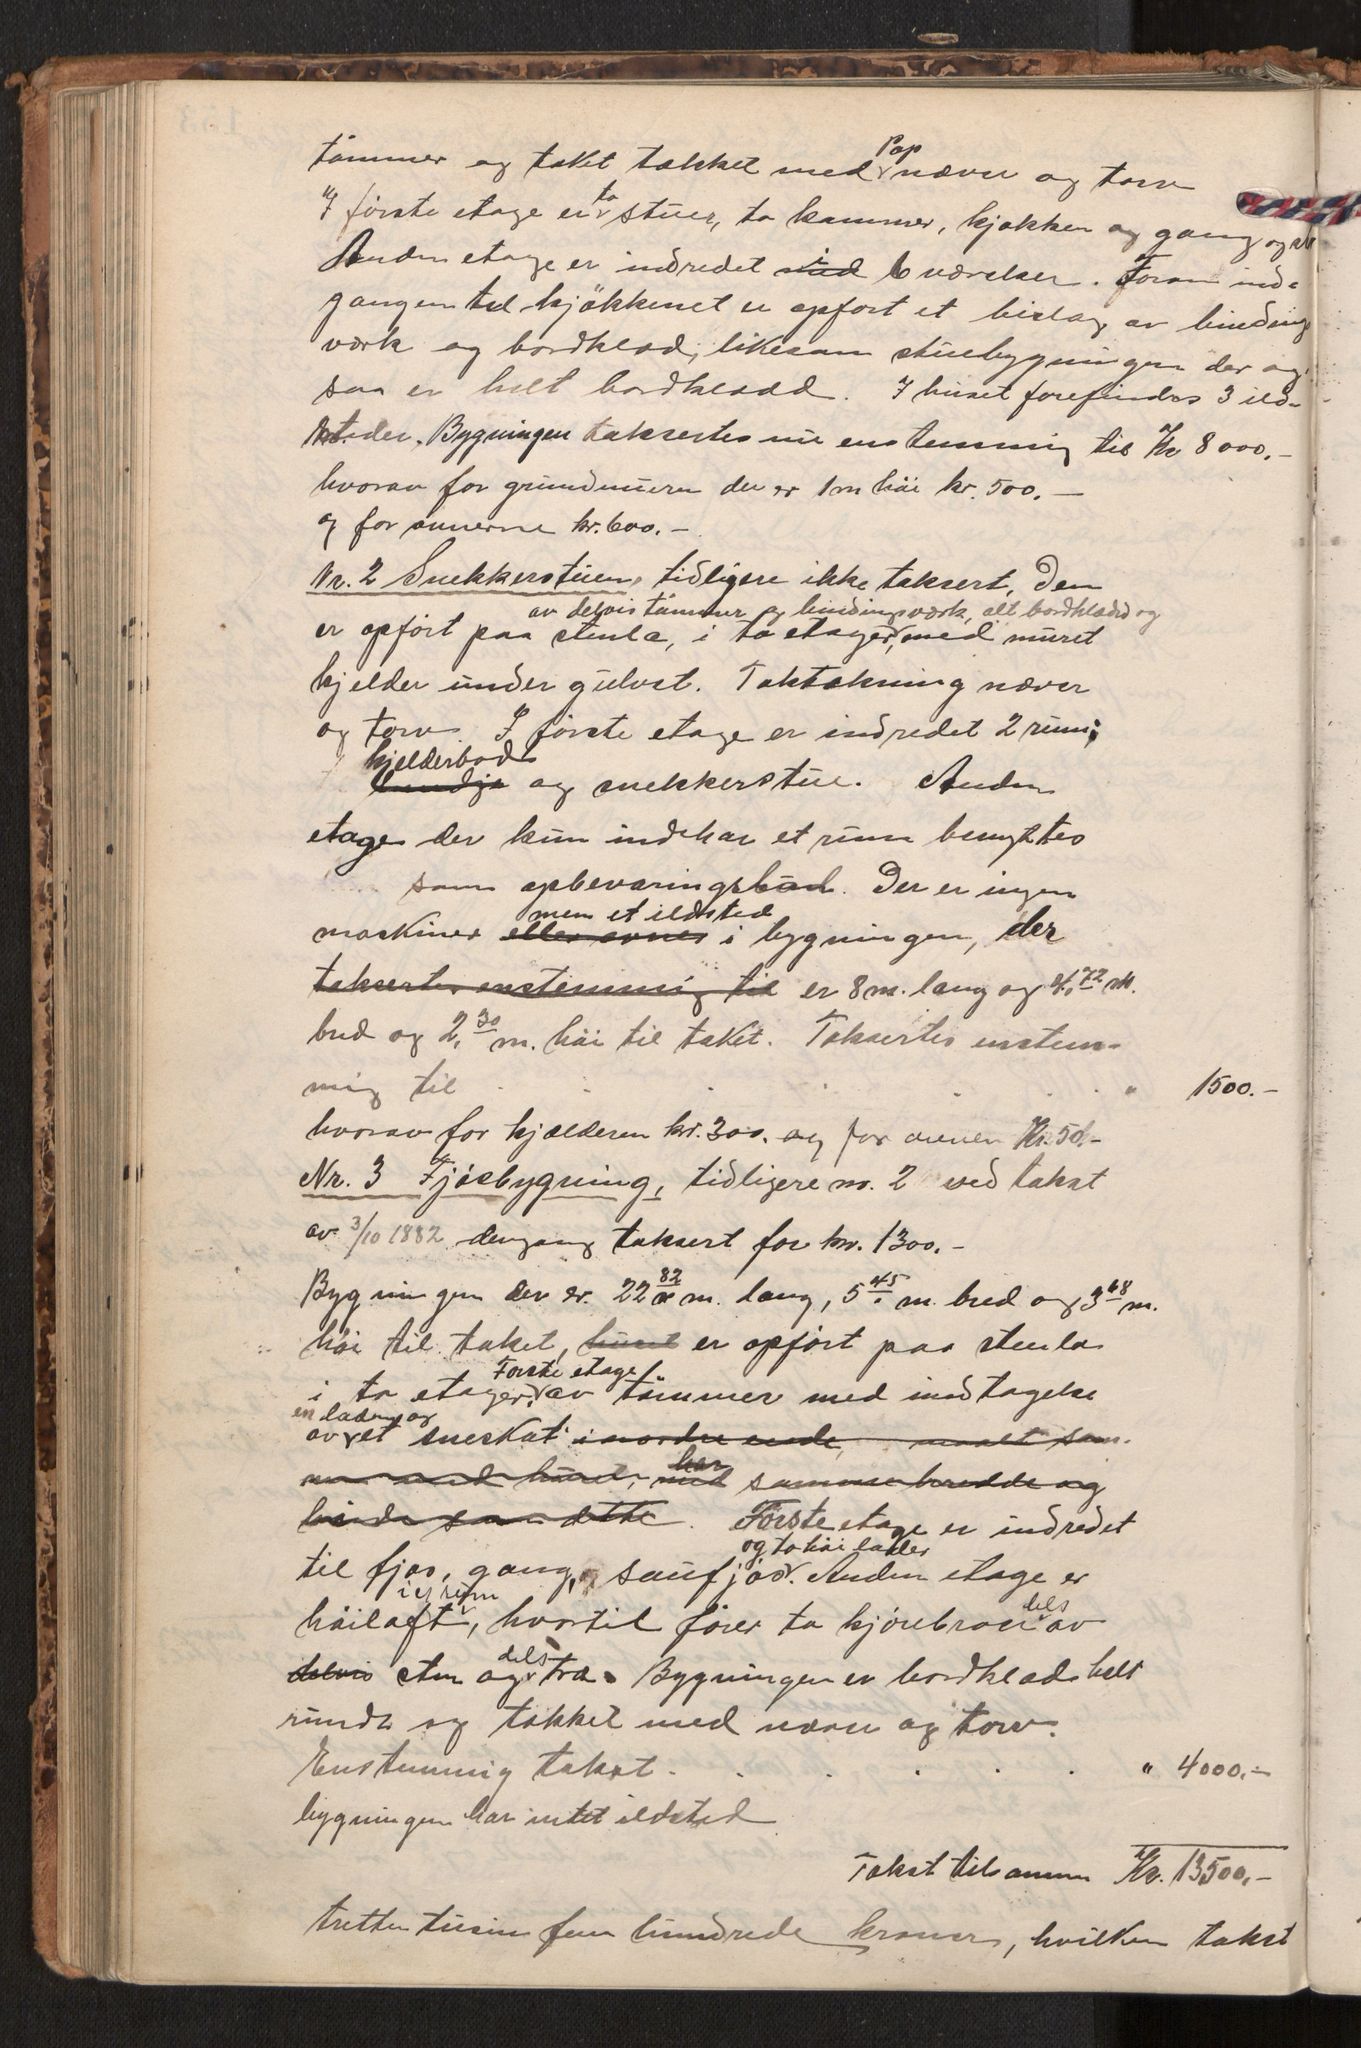 tömmer og taket tækket med Pap næver og torv
I første etage er to stuer, to kammer, kjøkken og gang og
Anden etage er indredet med i 6 værelser. Foran ind-
gangen til kjökkenet er opført et bislag av binding
værk og bordklæd, likesom stuebygningen der og
saa er helt bordklædd. I huset forefindes 3 ild-
steder. Bygningen takseres nu enstemmig til Kr 8000.-
hvorav for grundmuren der er 1 m höi kr. 500.-
og for ovnerne kr. 600.-
Nr. 2 Snekkerstuen, tidligere ikke taksert. Den
av delvis tömmer og bindingsværk, alt bordklædd og
er opført paa stenla, i to etager, med muret
kjelder under gulvet. Taktækning næver
og torv. I første etage er indredet 2 rum;
kjelderbod
og snekkerstue. Anden
etage der kun indehar et rum benyttes
som opbevaringsbod. Der er ingen
men et ildsted
maskiner eller ovner i bygningen, der
taksertes enstemmig til er 8 m. lang og 4,72 m.
bred og 2,30 m. höi til taket. Taksertes enstem-
mig til . . . . . . " 1500.-
hvorav for kjælderen kr. 300. og for ovnen Kr. 50.-
Nr. 3 Fjøsbygning, tidligere no. 2 ved takst
av 3/10 1882 dengang taksert for kr. 1300.-
Bygningen der er 22 82 m. lang, 5 45 m. bred og 3 68 m.
höi til taket, huset er opført paa stenla
Første etage
i to etager, av tömmer med indtagelse
en lade og
av et sneskut i nordre ende, maalt sam-
men med huset, med har samme bredde og
höide som dette. Første etage er indredet
og to höi lader
til fjøs, gang, og saufjøs. Anden etage er
i et rum
höilaft, hvortil fører to kjørebroer dels av
delvis sten og dels træ. Bygningen er bordklæd helt
rundt og tækket med næver og torv.
Enstemmig takst . . . . . " 4000.-
bygningen har intet ildsted
Takst tilsammen Kr. 13500.-
tretten tusin fem hundrede kroner, hvilken takst